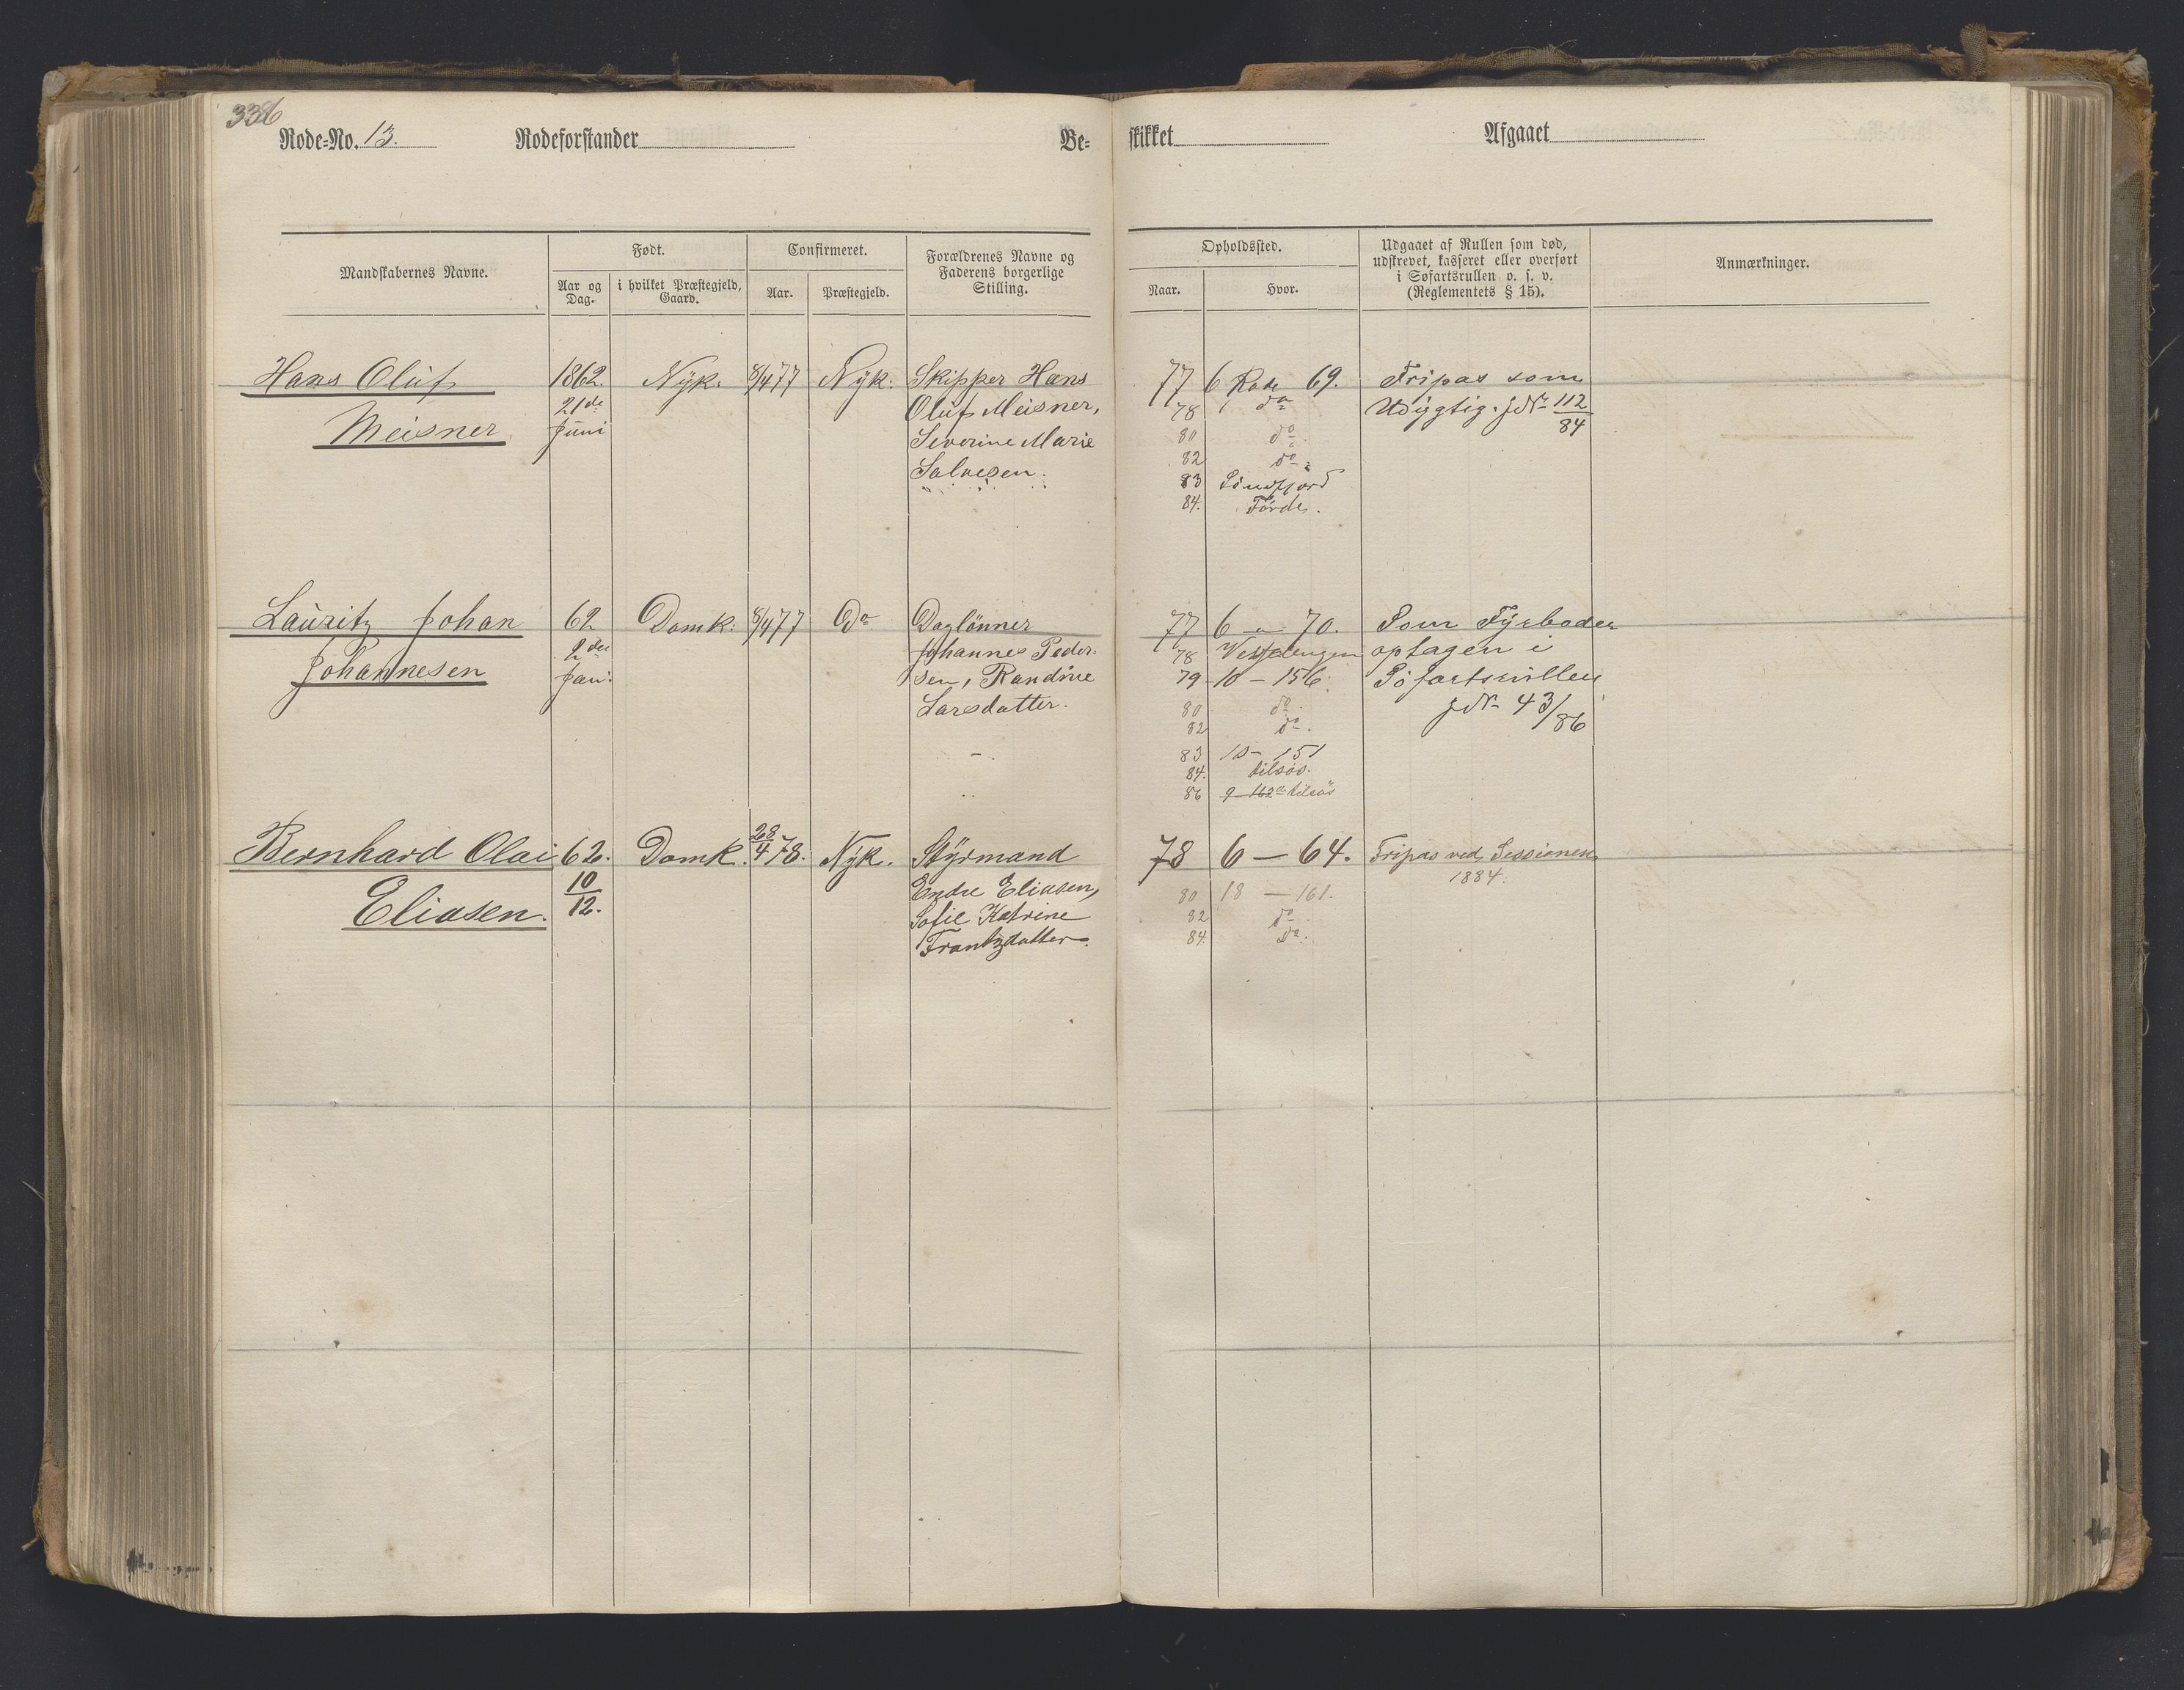 336
Rode-No. 13. Rodeforstander Be- skikket Afgaaet
Mandskabernes Navne.
Født.
Aar og Dag.
i hvilket Præstegjeld, Gaard.
Confirmeret.
Aar.
Præstegjeld.
Forældrenes Navne og
Faderens borgerlige
Stilling.
Opholdssted.
Naar.
Hvor.
Udgaaet af Rullen som død,
udskrevet, kasseret eller overført
i Søfartsrullen o. s. v.
(Reglementets § 15).
Anmærkninger.
Hans Oluf 1862. Nyk. 8/4 77 Nyk. Skipper Hans 77 6 Rode 69. Fripas som
21de Oluf Meisner, 78 do Udygtig. J.Nr 112/84
Meisner Juni Severine Marie 80 do
Salvesen. 82 do
83 Søndfjord
84. Førde.
Lauritz Johan 62 Domk. 8/4 77 Do Daglønner 77 6 - 70. Som Fyrbøder
2den Johannes Peder- 78 optagen i
Johannesen Jan. sen, Randine 79 10 - 156. Søfartsrullen
Larsdatter. 80 do J.Nr 43/86
82 do.
83 10 - 151
84. tilsøs.
86 9 - 162a tilsøs
Bernhard Olai 62. Domk. 28/4 78. Nyk. Styrmand 78 6 - 64. Fripas ved Sessionen
10/12. Endre Eliasen, 80 18 - 161. 1884.
Eliasen. Sofie Katrine 82 do
Frantzdatter. 84. do.